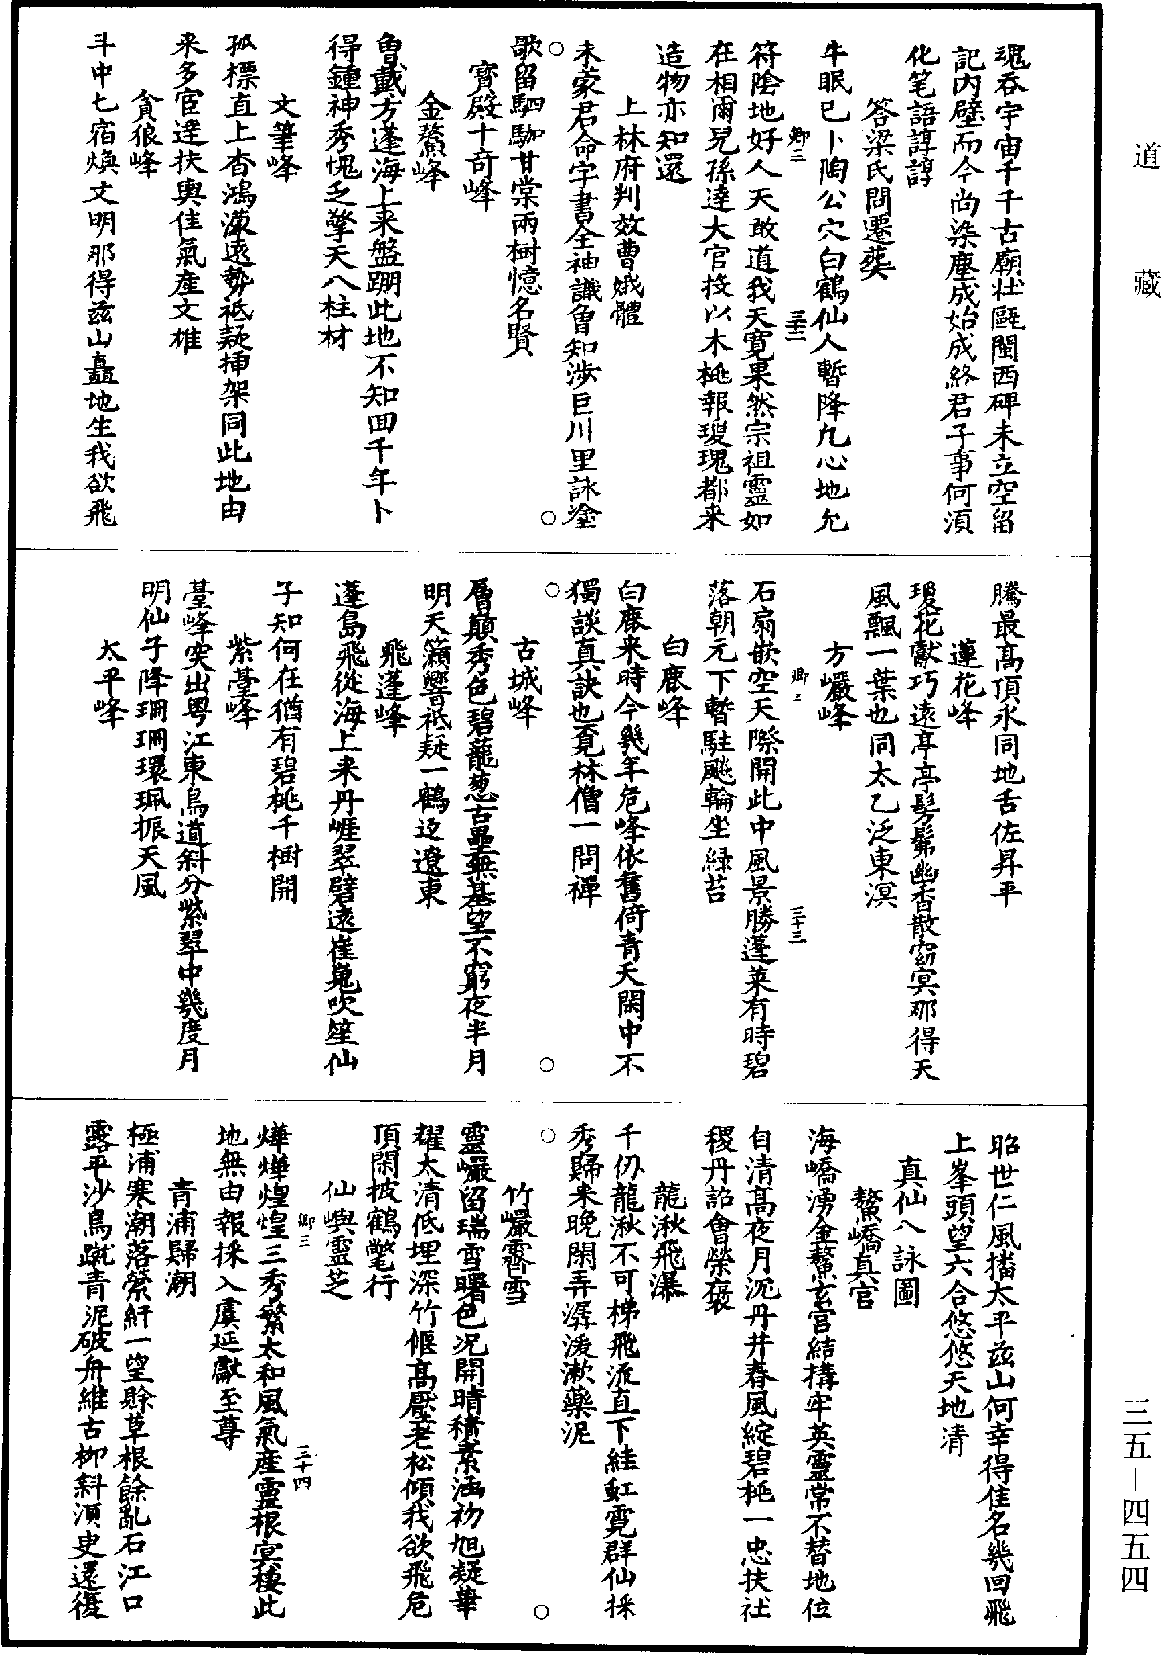 道藏
三五—四五四
魂吞宇宙千千古廟壯甌閩西碑未立空留
記內壁而今尚染塵成始成終君子事何須
化笔語諄諄
答梁氏問遷葬
牛眠已卜陶公穴白鶴仙人暫降凡心地允
鄉三
三十二
符陰地好人天敢道我天寬果然宗祖靈如
在相爾兒孫達大官投以木桃報瓊瑰都来
造物亦知還
上林府判效曹娥體
未蒙君命字書全神識曾知涉巨川里詠塗
歌留駟馳甘棠兩樹憶名賢
寶殿十奇峰
金鰲峰
曾戴方蓬海上来盤跚此地不知回千年卜
得鍾神秀愧乏擎天八柱材
文筆峰
孤標直上杳鴻濛遠勢祇疑插架同此地由
来多宦達扶輿佳氣產文雄
貪狼峰
斗中七宿煥文明那得兹山矗地生我欲飛
騰最高頂永同地舌佐昇平
蓮花峰
瓊花獻巧遠亭亭髣髴幽香散窈冥那得天
風飄一葉也同太乙泛東溟
方巖峰
鄉三
三十三
石扇嵌空天際開此中風景勝蓬萊有時碧
落朝元下暫駐飈輪坐緑苔
白鹿峰
白鹿来時今幾年危峰依舊倚青天閑中不
獨談真訣也覓林僧一問禪
古城峰
層巔秀色碧蘢葱古壘無基望不窮夜半月
明天籟響祇疑一鶴返遼東
飛蓬峰
蓬島飛從海上来丹崖翠壁遠崔嵬吹笙仙
子知何在猶有碧桃千樹開
紫臺峰
臺峰突出粤江東鳥道斜分紫翠中幾度月
明仙子降珊珊環珮振天風
太平峰
昭世仁風播太平兹山何幸得佳名幾回飛
上峯頭望六合悠悠天地清
真仙八詠圖
鰲嶠真宫
海嶠湧金鰲玄宫結構牢英靈常不替地位
自清高夜月沉丹井春風綻碧桃一忠扶社
稷丹詔會榮褒
龍湫飛瀑
千仞龍湫不可梯飛流直下絓虹霓群仙採
秀歸来晚閑弄潺湲漱藥泥
竹巖霽雪
靈巖留瑞雪曙色况開晴積素涵初旭凝華
耀太清低埋深竹偃高壓老松傾我欲飛危
頂閑披鶴氅行
仙嶼靈芝
鄉三
三十四
燁燁煌煌三秀繁太和風氣產靈根冥棲此
地無由報採入虞延獻至尊
青浦歸潮
極浦寒潮落縈紆一望賒草根餘亂石江口
露平沙鳥蹴青泥破舟維古柳斜湏臾還復